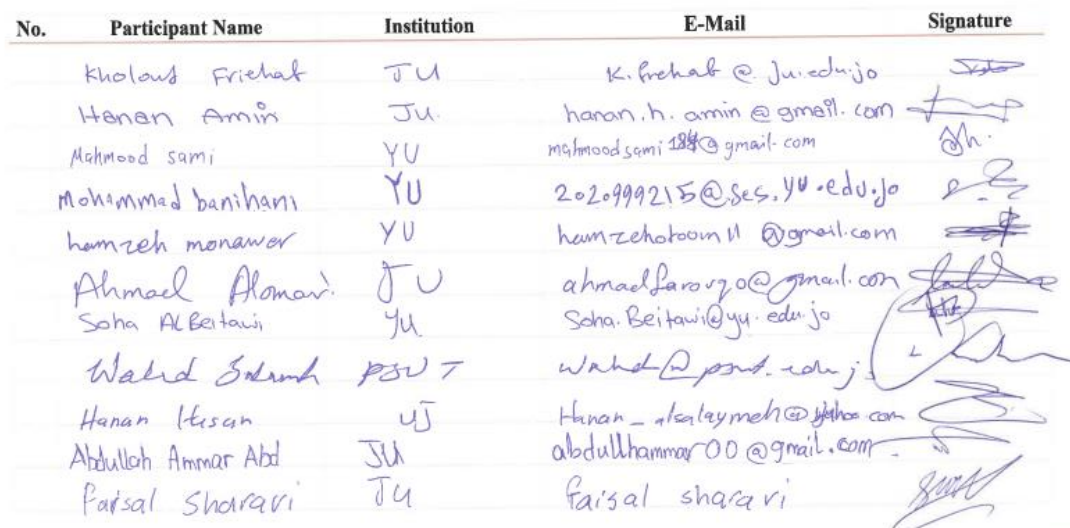 No. Participant Name Institution E-Mail Signature
Kholoud Friehat JU K.frehat@Ju.edu.jo
Hanan Amin JU. hanan.h.amin@gmail.com
Mahmood sami YU mahmoodsami184@gmail.com
Mohammad banihani YU 2020999215@ses.yu.edu.jo
hamzeh monawer YU hamzehotoom11@gmail.com
Ahmad Alomari. JU ahmadfarouq0@gmail.com
Soha AlBeitawi YU Soha.Beitawi@yu.edu.jo
Walid PSUT
Hanan Hasan UJ Hanan_alsalaymeh@yahoo.com
Abdullah Ammar Abd JU abdullhammar00@gmail.com
Faisal Sharari JU faisal sharari